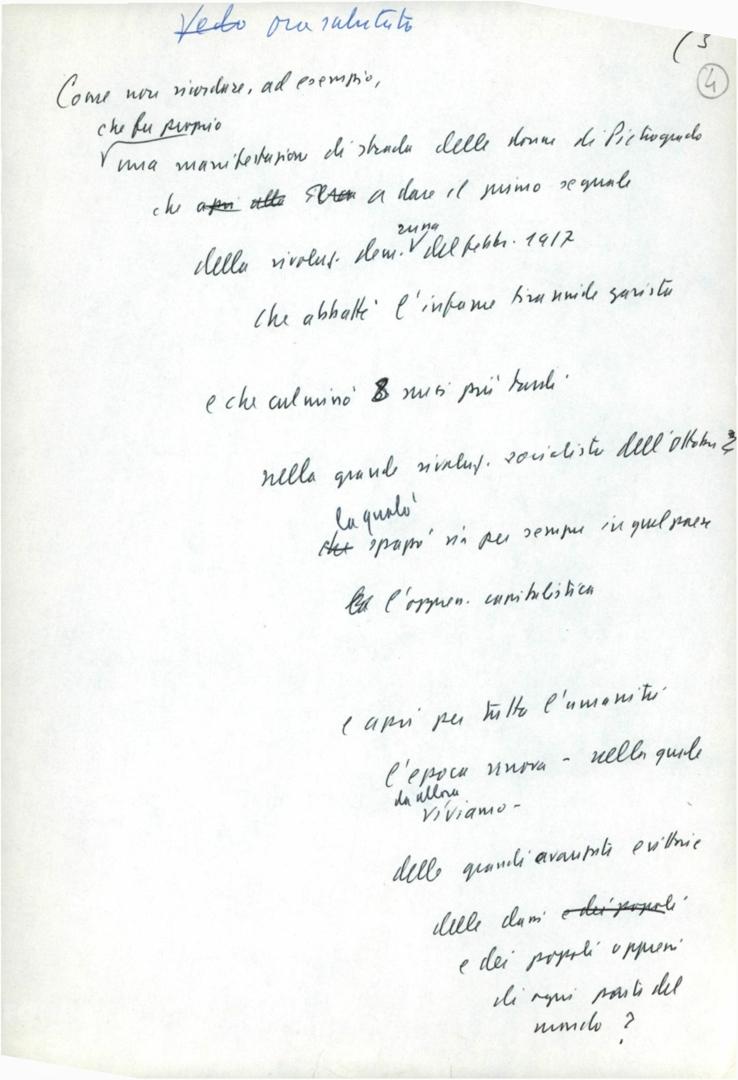 Vedo ora salutato
(3
4
Come non ricordare, ad esempio,
che fu proprio
una manifestazione di strada delle donne di Pietrogrado
che aprì alle a dare il primo segnale
della rivoluz. dem. russa del febbr. 1917
che abbatté l'infame tirannide zarista
e che culminò 8 mesi più tardi
nella grande rivoluz. socialista dell'Ottobre
la quale
che spazzò via per sempre in quel paese
l'oppress. capitalistica
e aprì per tutta l'umanità
l'epoca nuova - nella quale
da allora
viviamo -
delle grandi avanzate e vittorie
delle classi e dei popoli
e dei popoli oppressi
di ogni parte del
mondo ?